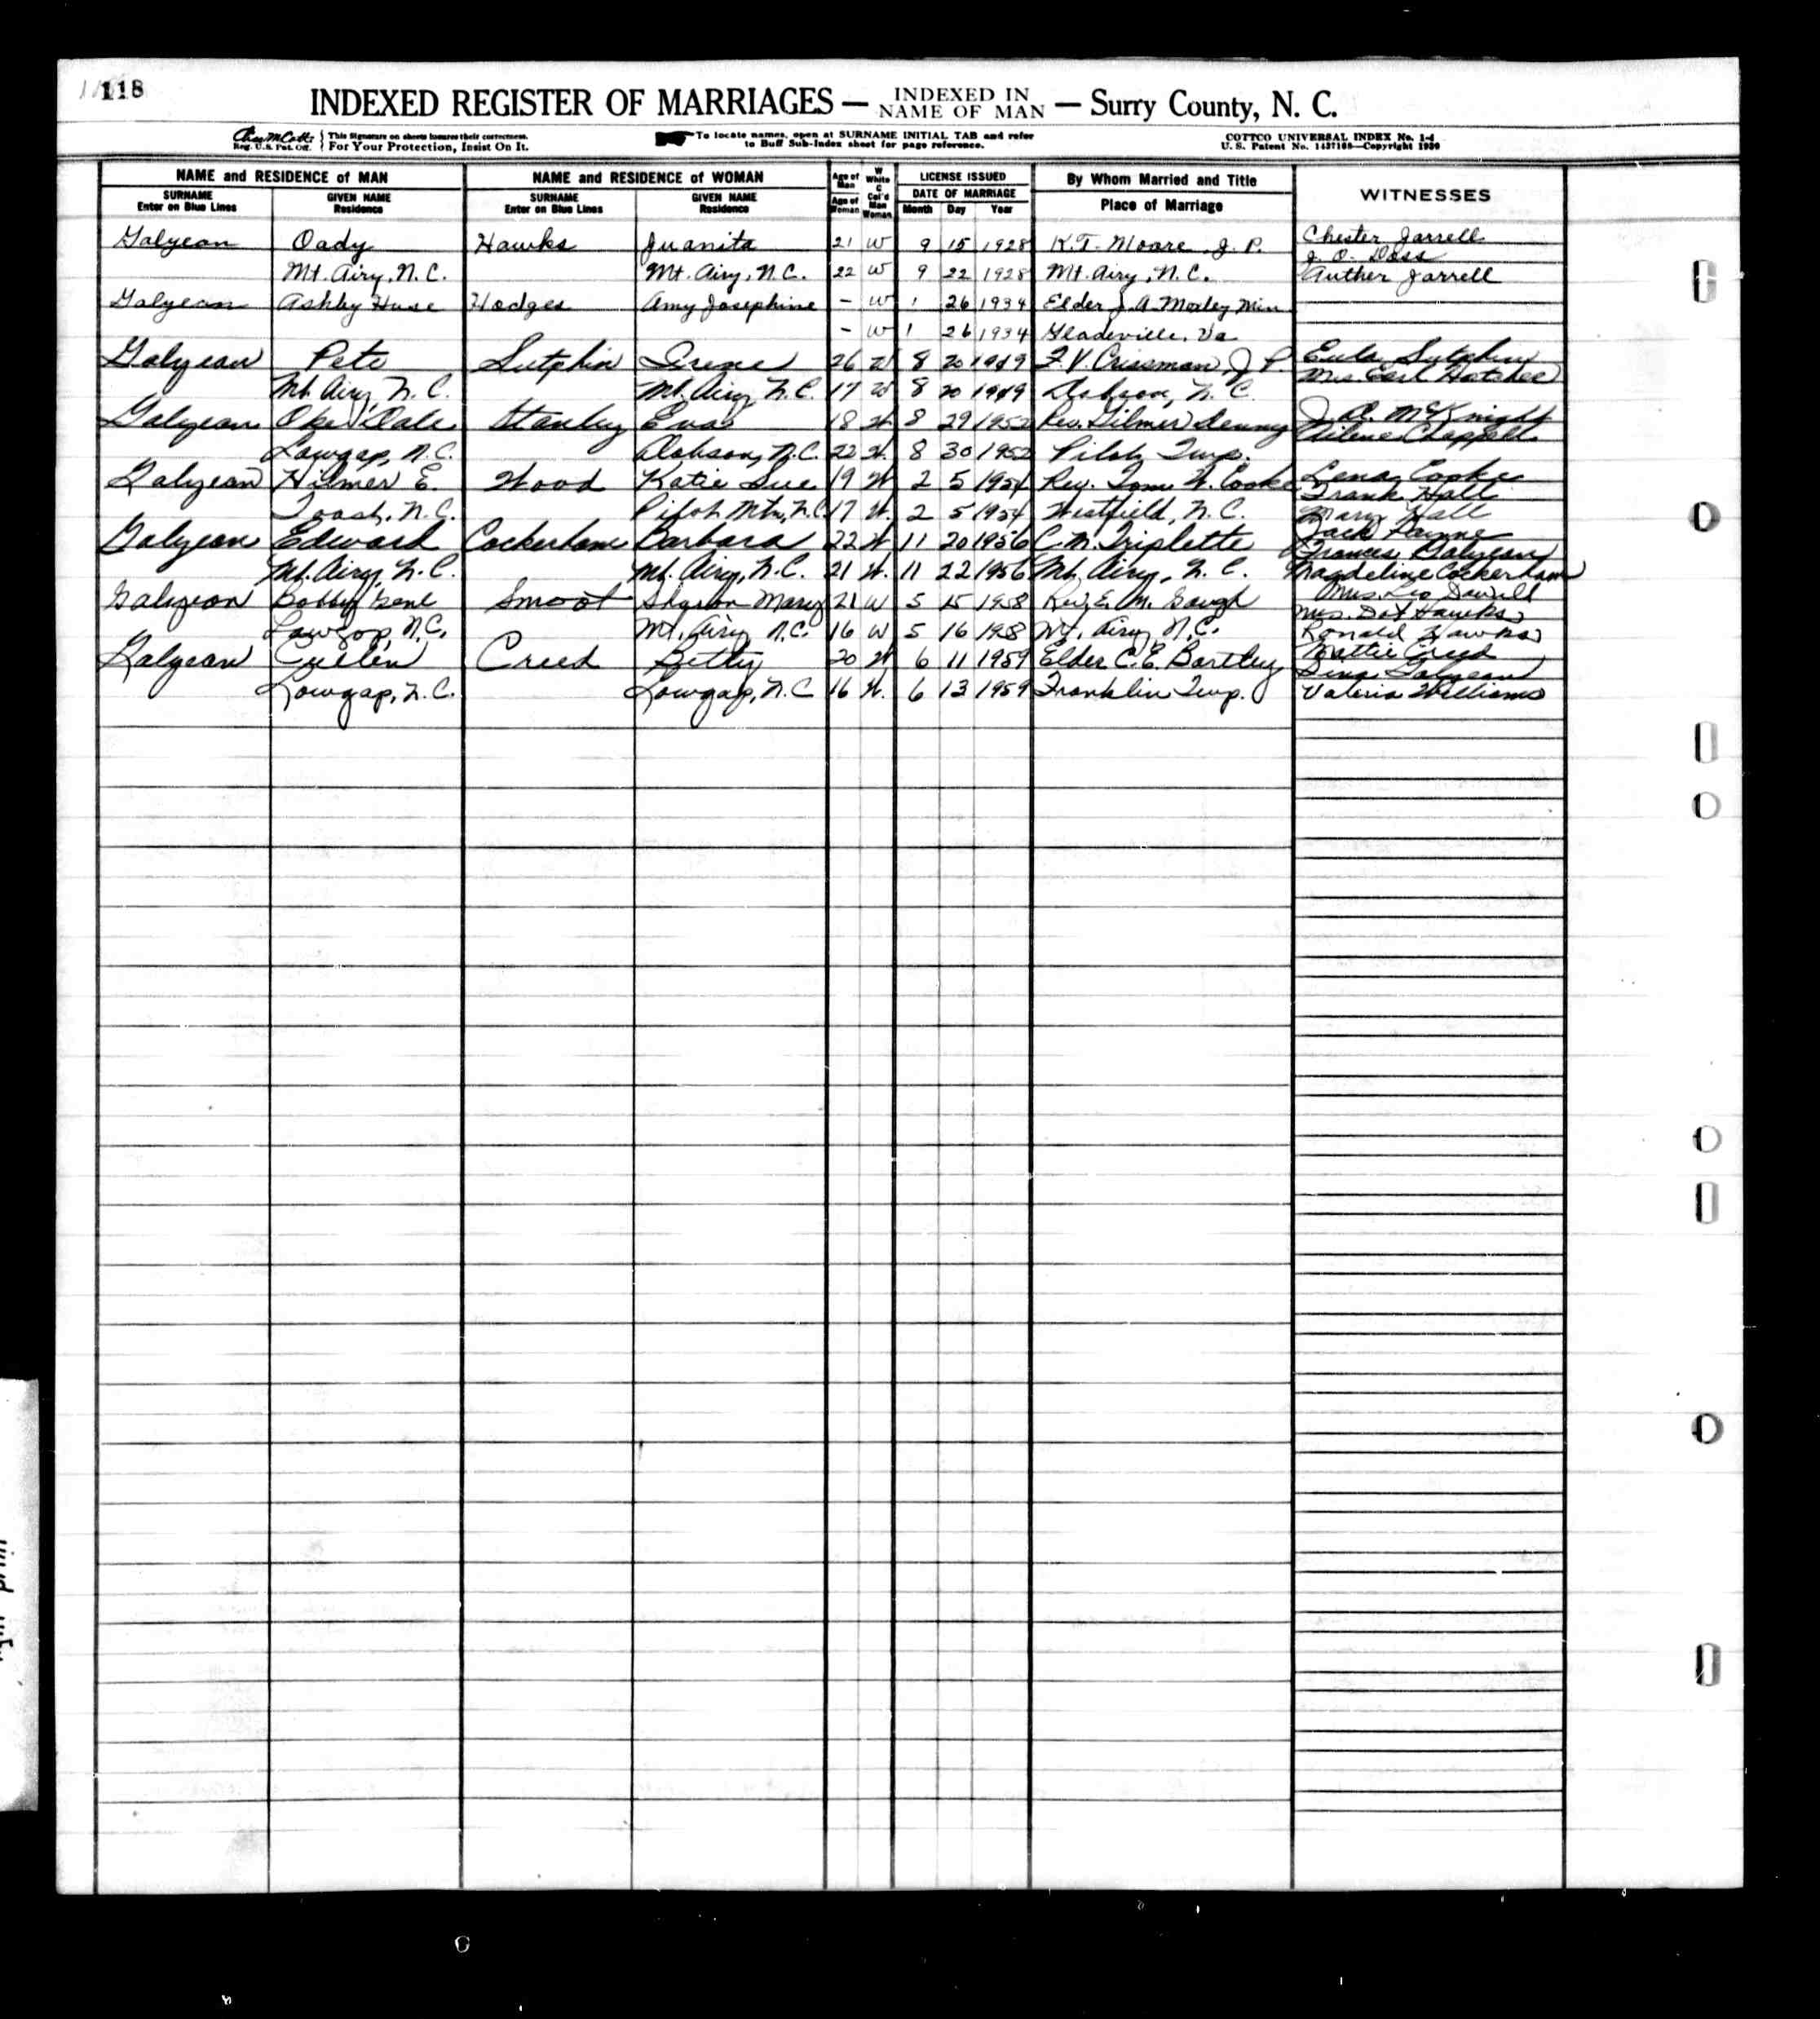 118
INDEXED REGISTER OF MARRIAGES — INDEXED IN NAME OF MAN — Surry County, N. C.
This Signature on sheets insures their correctness.
Reg. U.S. Pat. Off. For Your Protection, Insist On It.
To locate names, open at SURNAME INITIAL TAB and refer
to Buff Sub-Index sheet for page reference.
COTTCO UNIVERSAL INDEX No. 1-4
U. S. Patent No. Copyright
NAME and RESIDENCE of MAN NAME and RESIDENCE of WOMAN Age of Man Age of Woman W White C Col'd Man Woman LICENSE ISSUED By Whom Married and Title WITNESSES
SURNAME Enter on Blue Lines GIVEN NAME Residence SURNAME Enter on Blue Lines GIVEN NAME Residence DATE OF MARRIAGE Month Day Year Place of Marriage
Galyean Oady Hawks Juanita 21 W 9 15 1928 K.T. Moore J. P. Chester Jarrell
J. O. Doss
Mt. Airy, N.C. Mt. Airy, N.C. 22 W 9 22 1928 Mt. Airy, N.C. Auther Jarrell
Galyean Ashby Hodges Amy Josephine – W 1 26 1934 Elder J. A. Min
– W 1 26 1934 Gladeville, Va
Galyean Pete Sutphin Irene 26 W 8 20 1949 F. V. Crissman, J P. Eula Sutphin
Mrs Earl Hatcher
Mt. Airy, N.C. Mt. Airy, N.C. 17 W 8 20 1949 Dobson, N.C.
Galyean Dale Stanley Eva 18 W 8 29 1952 Rev. Gilmer Denny J. D. McKnight
Ailene Chappell
Lowgap, N.C. Dobson, N.C. 22 W. 8 30 1952 Pilot Twp.
Galyean Hilmer E. Wood Katie Sue 19 W 2 5 1954 Rev. Tom W. Cooke Lena Cooke
Frank Hall
Toast, N.C. Pilot Mtn, N.C. 17 W. 2 5 1954 Westfield, N.C. Mary Hall
Galyean Edward Cockerham Barbara 22 W 11 20 1956 C. M. Triplette Jack
Frances Galyean
Mt. Airy, N.C. Mt. Airy, N.C. 21 W. 11 22 1956 Mt. Airy, N.C. Magdeline Cockerham
Galyean Bobby Gene Smoot Sharon Mary 21 W 5 15 1958 Rev. E. M. Gough Mrs. Leo
Mrs. Dot Hawks
Lowgap, N.C. Mt. Airy N.C. 16 W 5 16 1958 Mt. Airy, N.C. Ronald Hawks
Galyean Creed Betty 20 W 6 11 1959 Elder C. E. Bartley Mattie Creed
Galyean
Lowgap, N.C. Lowgap, N.C 16 W. 6 13 1959 Franklin Twp. Valeria Williams